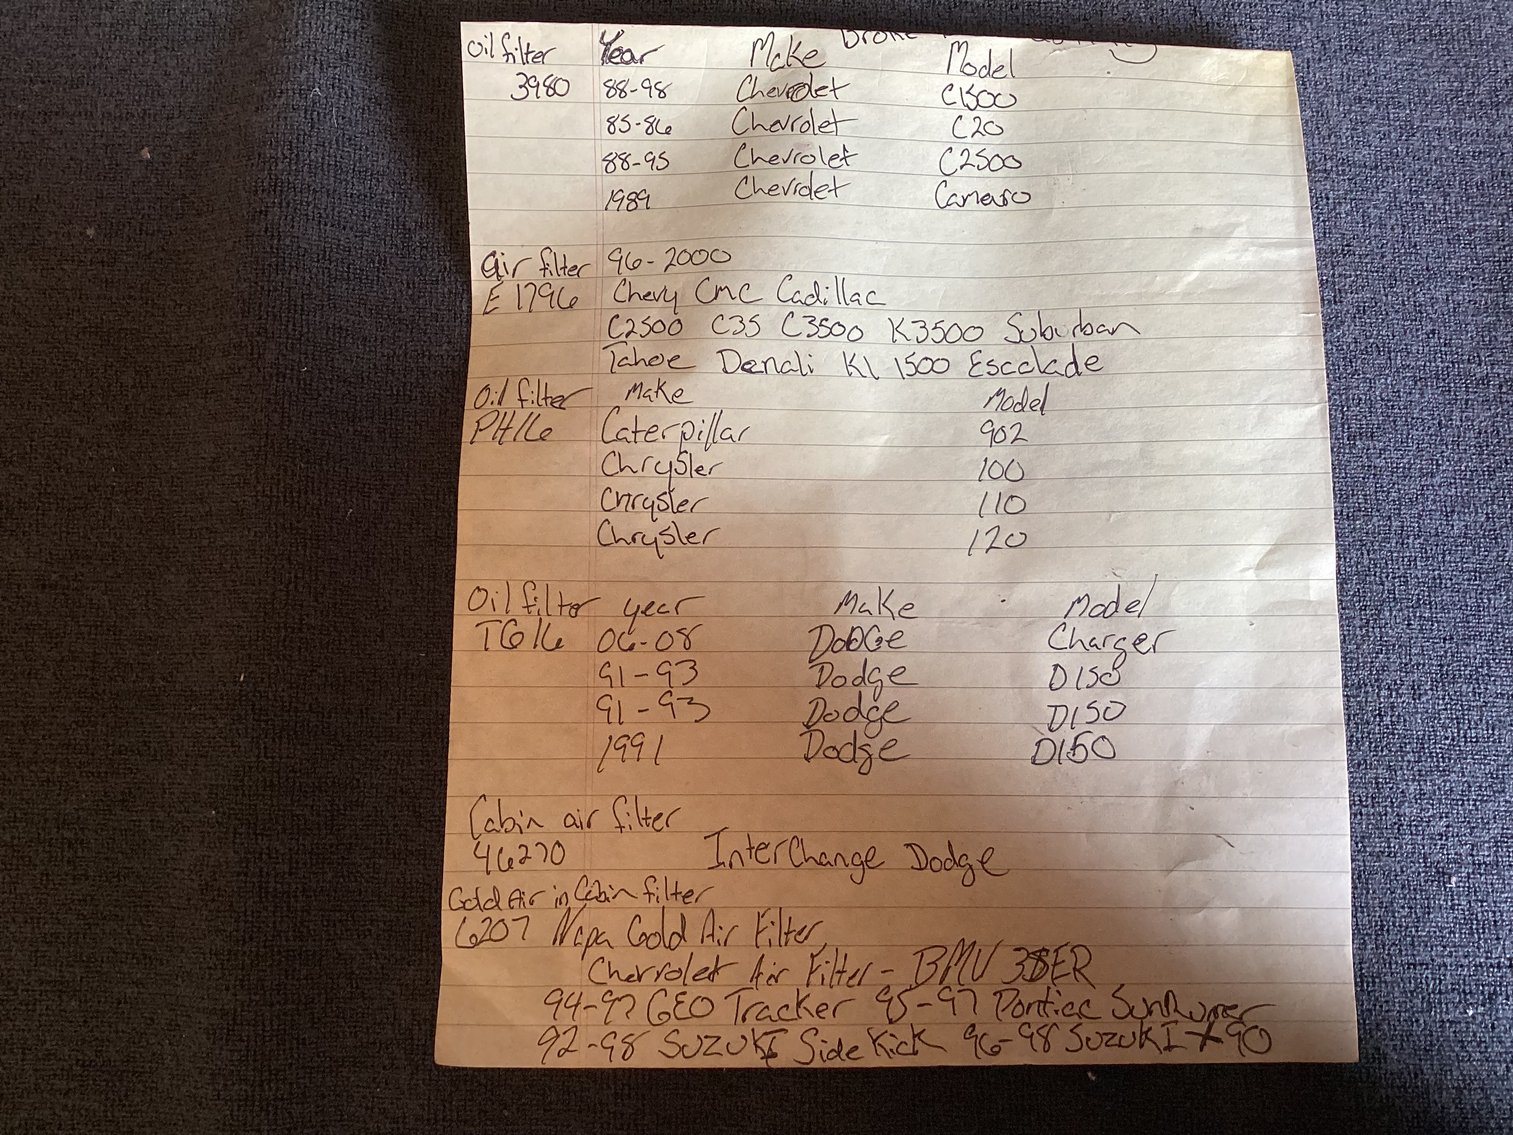 Oil filter Year Make Model
3980 88-98 Chevrolet C1500
85-86 Chevrolet C20
88-95 Chevrolet C2500
1989 Chevrolet Camaro
Air filter 96-2000
E1796 Chevy GMC Cadillac
C2500 C35 C3500 K3500 Suburban
Tahoe Denali K1 1500 Escalade
Oil filter Make Model
PH16 Caterpillar 902
Chrysler 100
Chrysler 110
Chrysler 120
Oil filter year Make Model
TG16 06-08 DODGE Charger
91-93 Dodge D150
91-93 Dodge D150
1991 Dodge D150
Cabin air filter
46270 InterChange Dodge
Gold Air in Cabin filter
6207 Napa Gold Air Filter
Chevrolet Air Filter - BMW 3SER
94-97 GEO Tracker 95-97 Pontiac SunRuner
92-98 SUZUKI SideKick 96-98 SUZUKI X90